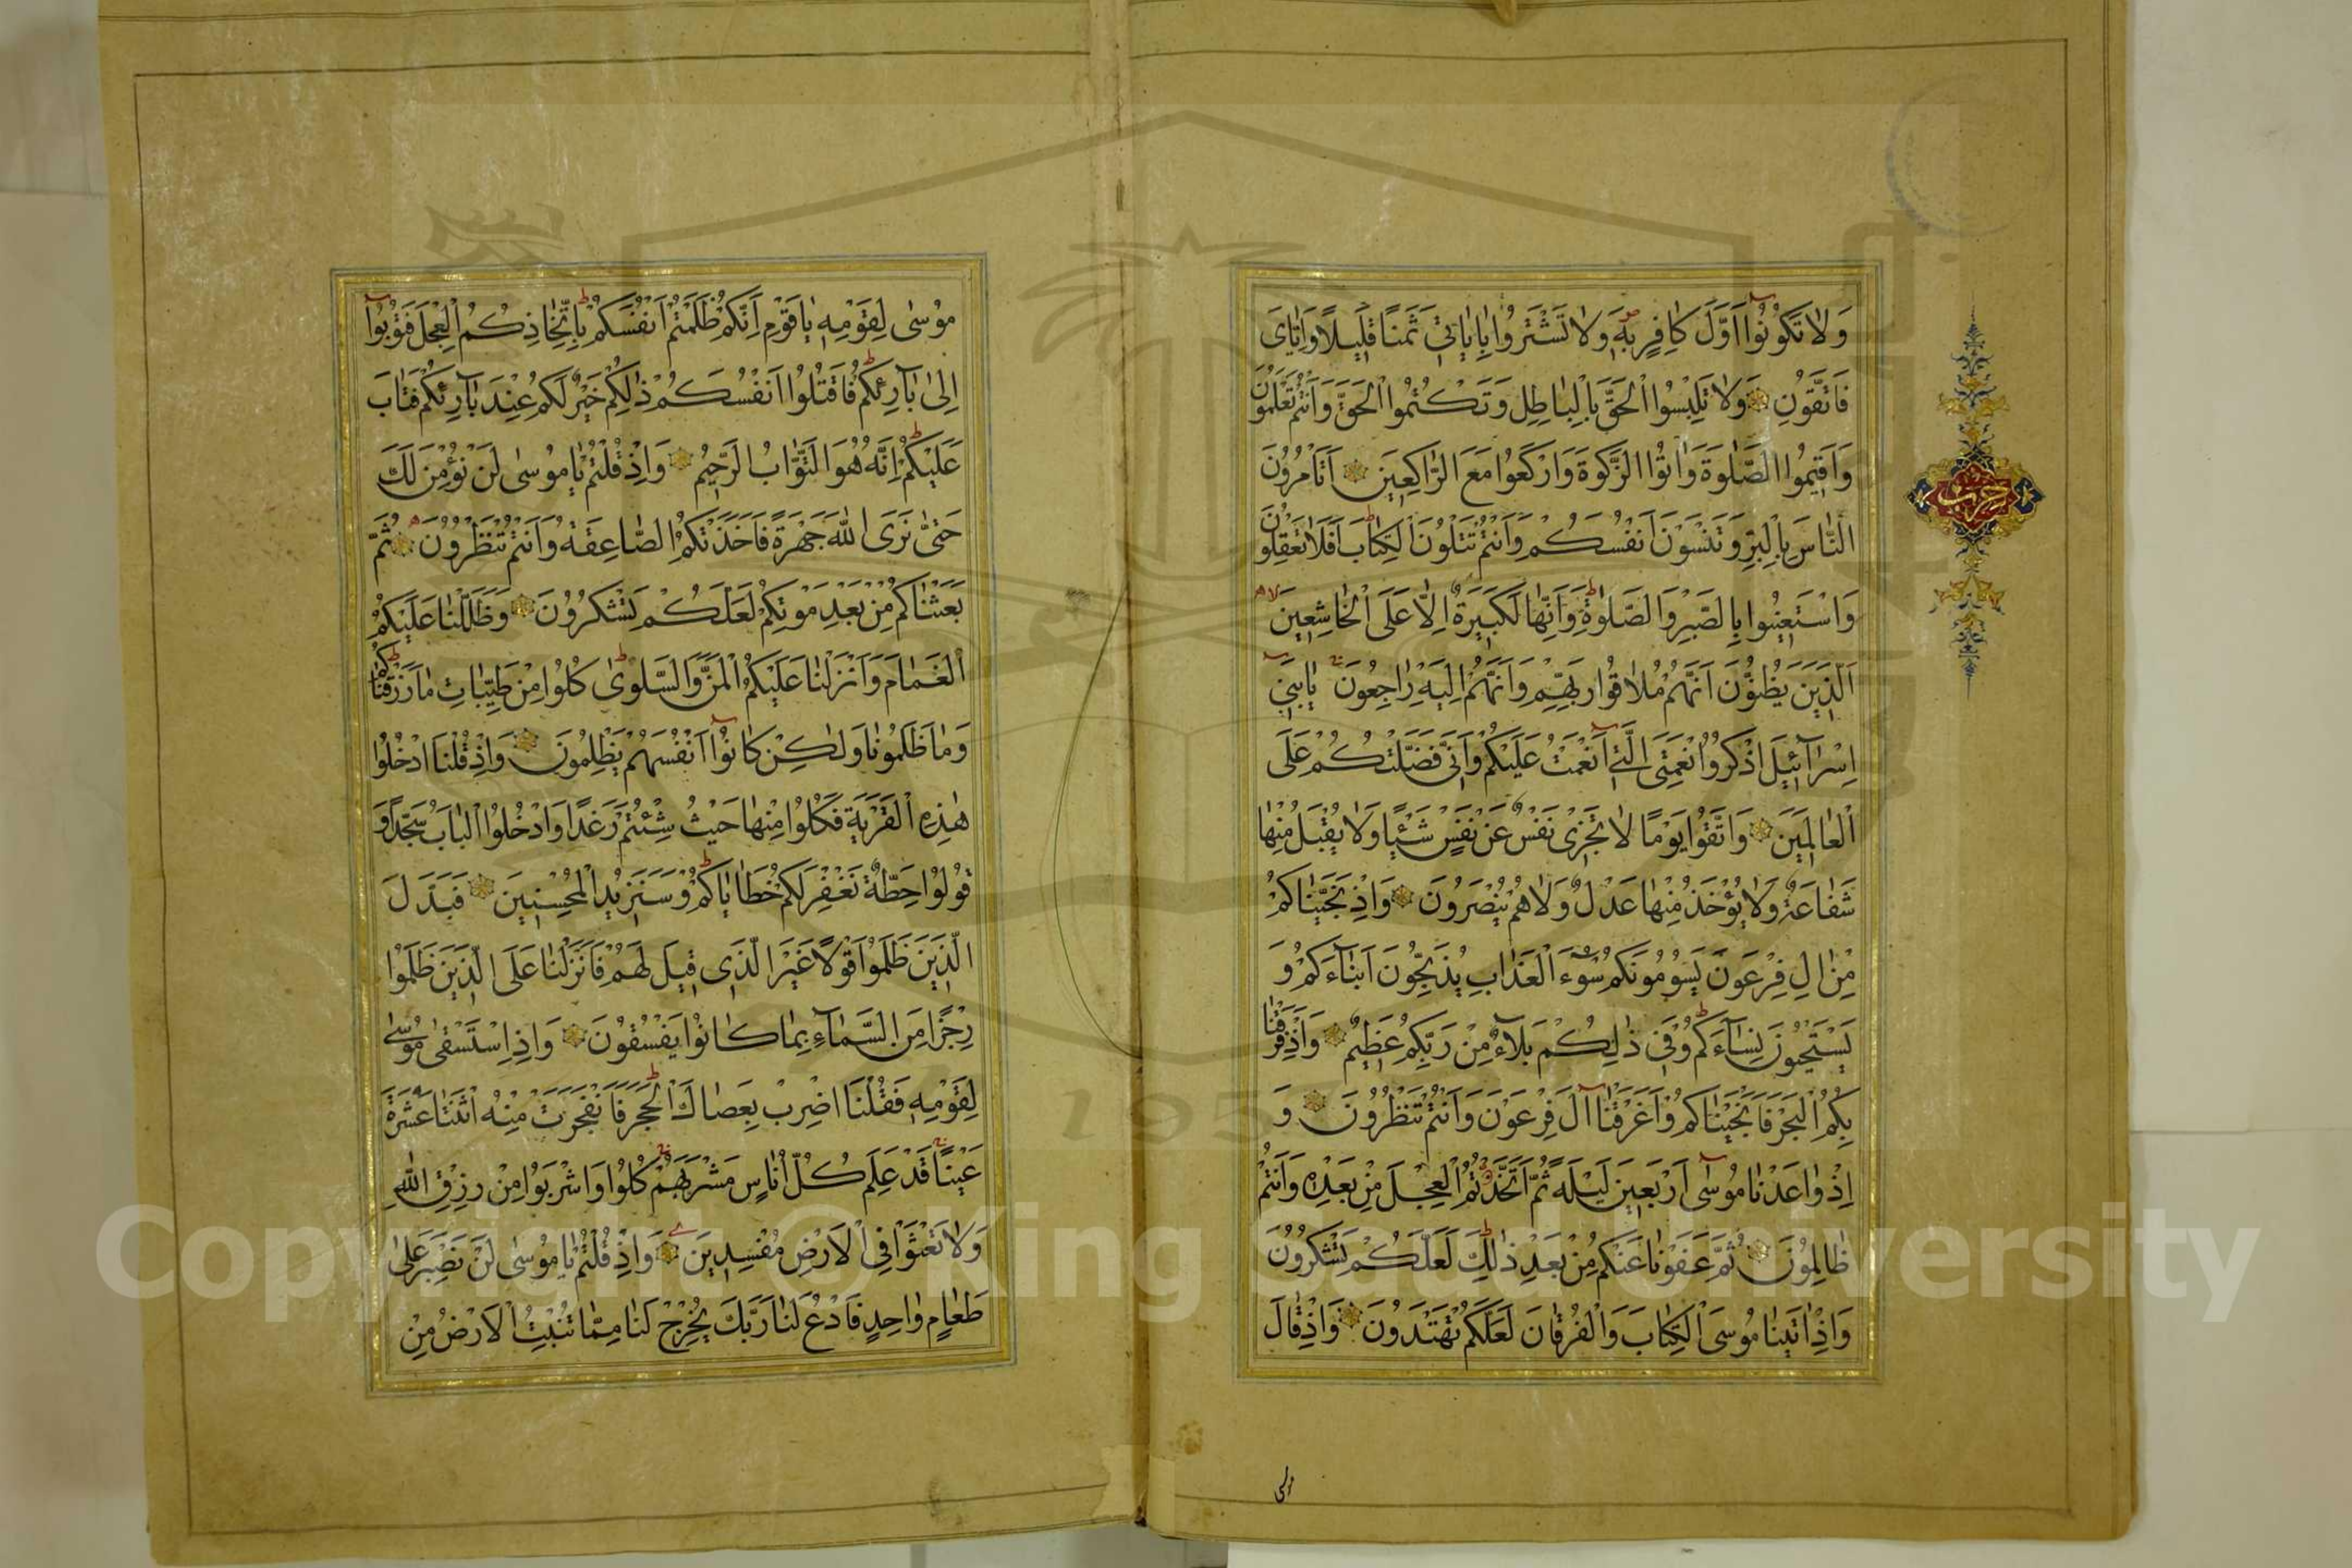 وَلَا تَكُونُوا أَوَّلَ كَافِرٍ بِهِ وَلَا تَشْتَرُوا بِآيَاتِي ثَمَنًا قَلِيلًا وَإِيَّايَ
فَاتَّقُونِ وَلَا تَلْبِسُوا الْحَقَّ بِالْبَاطِلِ وَتَكْتُمُوا الْحَقَّ وَأَنْتُمْ تَعْلَمُونَ
وَأَقِيمُوا الصَّلٰوةَ وَآتُوا الزَّكٰوةَ وَارْكَعُوا مَعَ الرَّاكِعِينَ أَتَأْمُرُونَ
النَّاسَ بِالْبِرِّ وَتَنْسَوْنَ أَنْفُسَكُمْ وَأَنْتُمْ تَتْلُونَ الْكِتَابَ أَفَلَا تَعْقِلُونَ
وَاسْتَعِينُوا بِالصَّبْرِ وَالصَّلٰوةِ وَإِنَّهَا لَكَبِيرَةٌ إِلَّا عَلَى الْخَاشِعِينَ
الَّذِينَ يَظُنُّونَ أَنَّهُمْ مُلَاقُوا رَبِّهِمْ وَأَنَّهُمْ إِلَيْهِ رَاجِعُونَ يَا بَنِي
إِسْرَائِيلَ اذْكُرُوا نِعْمَتِيَ الَّتِي أَنْعَمْتُ عَلَيْكُمْ وَأَنِّي فَضَّلْتُكُمْ عَلَى
الْعَالَمِينَ وَاتَّقُوا يَوْمًا لَا تَجْزِي نَفْسٌ عَنْ نَفْسٍ شَيْئًا وَلَا يُقْبَلُ مِنْهَا
شَفَاعَةٌ وَلَا يُؤْخَذُ مِنْهَا عَدْلٌ وَلَا هُمْ يُنْصَرُونَ وَإِذْ نَجَّيْنَاكُمْ
مِنْ آلِ فِرْعَوْنَ يَسُومُونَكُمْ سُوءَ الْعَذَابِ يُذَبِّحُونَ أَبْنَاءَكُمْ وَ
يَسْتَحْيُونَ نِسَاءَكُمْ وَفِي ذٰلِكُمْ بَلَاءٌ مِنْ رَبِّكُمْ عَظِيمٌ وَإِذْ فَرَقْنَا
بِكُمُ الْبَحْرَ فَأَنْجَيْنَاكُمْ وَأَغْرَقْنَا آلَ فِرْعَوْنَ وَأَنْتُمْ تَنْظُرُونَ وَ
إِذْ وَاعَدْنَا مُوسَى أَرْبَعِينَ لَيْلَةً ثُمَّ اتَّخَذْتُمُ الْعِجْلَ مِنْ بَعْدِهِ وَأَنْتُمْ
ظَالِمُونَ ثُمَّ عَفَوْنَا عَنْكُمْ مِنْ بَعْدِ ذٰلِكَ لَعَلَّكُمْ تَشْكُرُونَ
وَإِذْ آتَيْنَا مُوسَى الْكِتَابَ وَالْفُرْقَانَ لَعَلَّكُمْ تَهْتَدُونَ وَإِذْ قَالَ
حزب
مُوسٰى لِقَوْمِهِ يَا قَوْمِ إِنَّكُمْ ظَلَمْتُمْ أَنْفُسَكُمْ بِاتِّخَاذِكُمُ الْعِجْلَ فَتُوبُوا
إِلَى بَارِئِكُمْ فَاقْتُلُوا أَنْفُسَكُمْ ذٰلِكُمْ خَيْرٌ لَكُمْ عِنْدَ بَارِئِكُمْ فَتَابَ
عَلَيْكُمْ إِنَّهُ هُوَ التَّوَّابُ الرَّحِيمُ وَإِذْ قُلْتُمْ يَا مُوسٰى لَنْ نُؤْمِنَ لَكَ
حَتَّى نَرَى اللهَ جَهْرَةً فَأَخَذَتْكُمُ الصَّاعِقَةُ وَأَنْتُمْ تَنْظُرُونَ ثُمَّ
بَعَثْنَاكُمْ مِنْ بَعْدِ مَوْتِكُمْ لَعَلَّكُمْ تَشْكُرُونَ وَظَلَّلْنَا عَلَيْكُمُ
الْغَمَامَ وَأَنْزَلْنَا عَلَيْكُمُ الْمَنَّ وَالسَّلْوٰى كُلُوا مِنْ طَيِّبَاتِ مَا رَزَقْنَاكُمْ
وَمَا ظَلَمُونَا وَلٰكِنْ كَانُوا أَنْفُسَهُمْ يَظْلِمُونَ وَإِذْ قُلْنَا ادْخُلُوا
هٰذِهِ الْقَرْيَةَ فَكُلُوا مِنْهَا حَيْثُ شِئْتُمْ رَغَدًا وَادْخُلُوا الْبَابَ سُجَّدًا وَ
قُولُوا حِطَّةٌ نَغْفِرْ لَكُمْ خَطَايَاكُمْ وَسَنَزِيدُ الْمُحْسِنِينَ فَبَدَّلَ
الَّذِينَ ظَلَمُوا قَوْلًا غَيْرَ الَّذِي قِيلَ لَهُمْ فَأَنْزَلْنَا عَلَى الَّذِينَ ظَلَمُوا
رِجْزًا مِنَ السَّمَاءِ بِمَا كَانُوا يَفْسُقُونَ وَإِذِ اسْتَسْقٰى مُوسٰى
لِقَوْمِهِ فَقُلْنَا اضْرِبْ بِعَصَاكَ الْحَجَرَ فَانْفَجَرَتْ مِنْهُ اثْنَتَا عَشْرَةَ
عَيْنًا قَدْ عَلِمَ كُلُّ أُنَاسٍ مَشْرَبَهُمْ كُلُوا وَاشْرَبُوا مِنْ رِزْقِ اللهِ
وَلَا تَعْثَوْا فِي الْأَرْضِ مُفْسِدِينَ وَإِذْ قُلْتُمْ يَا مُوسٰى لَنْ نَصْبِرَ عَلٰى
طَعَامٍ وَاحِدٍ فَادْعُ لَنَا رَبَّكَ يُخْرِجْ لَنَا مِمَّا تُنْبِتُ الْأَرْضُ مِنْ
Copyright © King Saud University